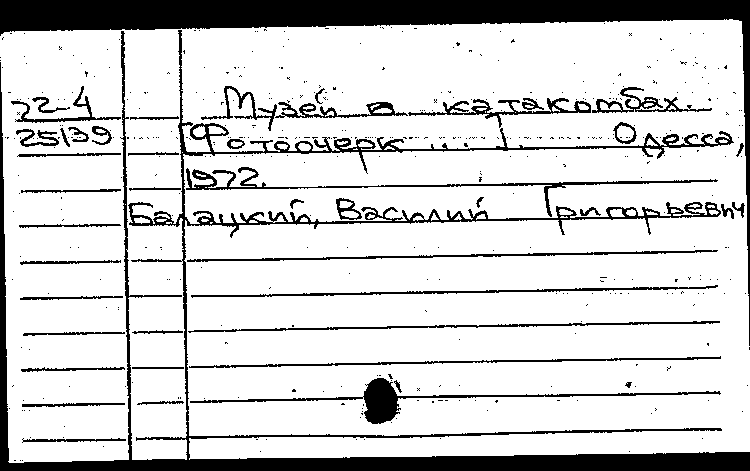 72-4 Музей в катакомбах.
25139 [Фотоочерк ...]. Одесса,
1972.
Балацкий, Василий Григорьевич